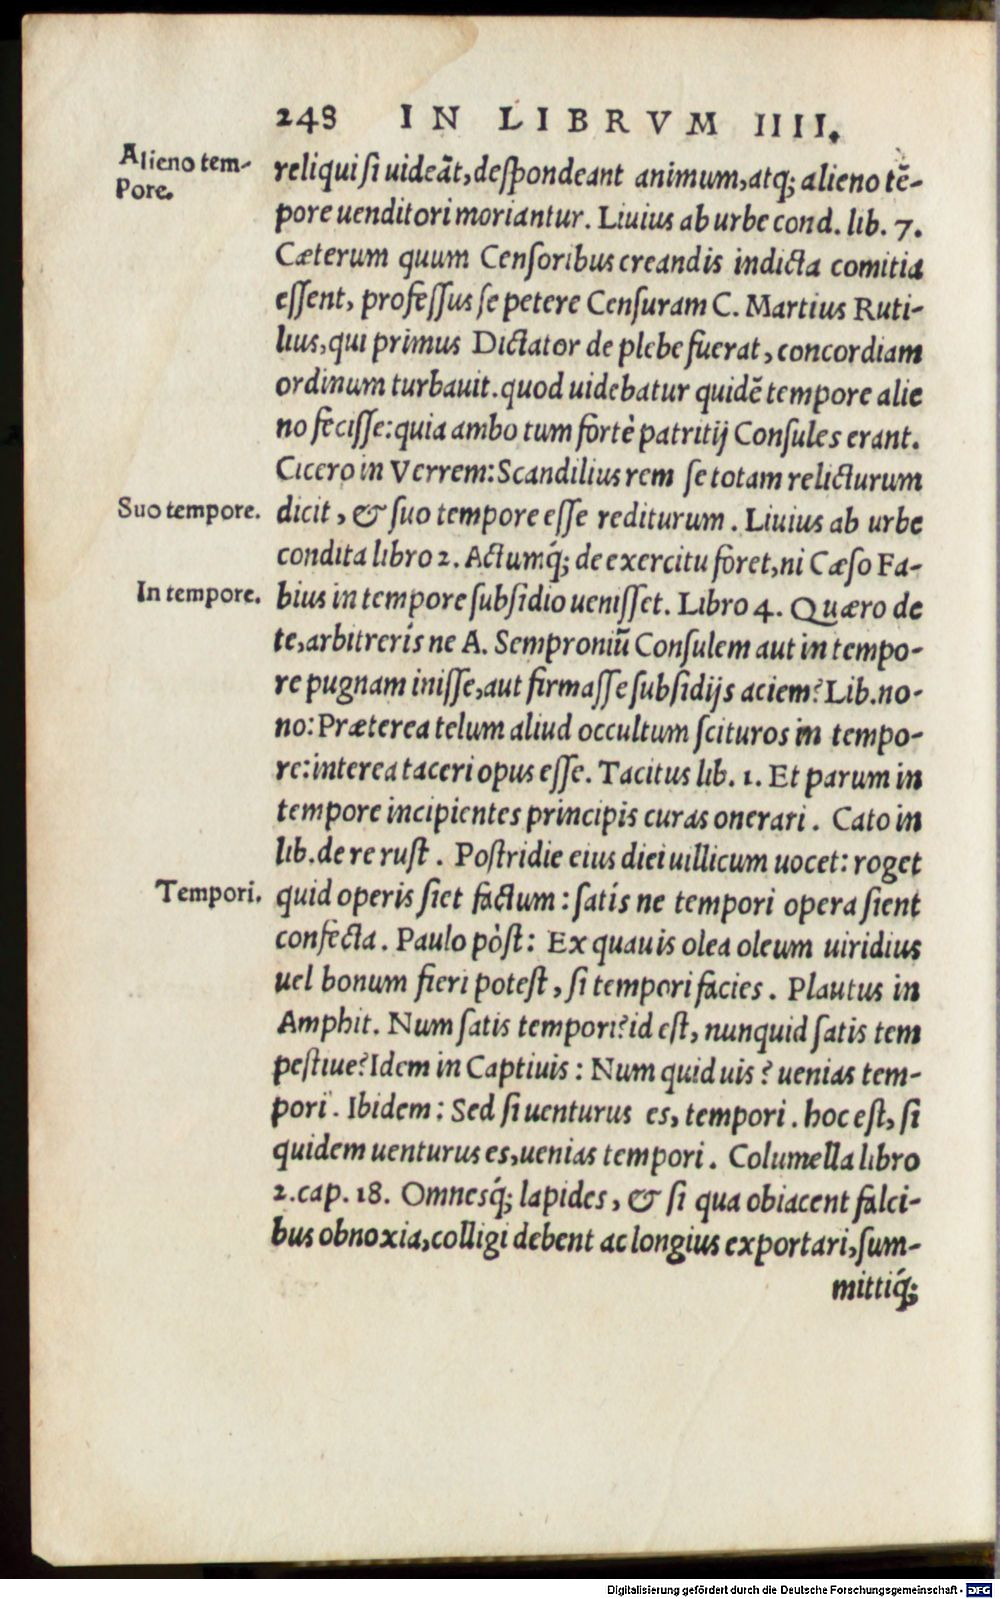 248 IN LIBRVM IIII.
Alieno tem-
pore.
reliqui si uideãt, despondeant animum, atq; alieno tẽ-
pore uenditori moriantur. Liuius ab urbe cond. lib. 7.
Cæterum quum Censoribus creandis indicta comitia
essent, professus se petere Censuram C. Martius Ruti-
lius, qui primus Dictator de plebe fuerat, concordiam
ordinum turbauit. quod uidebatur quidẽ tempore alie
no fecisse: quia ambo tum fortè patritij Consules erant.
Cicero in Verrem: Scandilius rem se totam relicturum
Suo tempore.
dicit, & suo tempore esse rediturum. Liuius ab urbe
condita libro 2. Actumq́; de exercitu foret, ni Cæso Fa-
In tempore.
bius in tempore subsidio uenisset. Libro 4. Quæro de
te, arbitrerís ne A. Semproniũ Consulem aut in tempo-
re pugnam inisse, aut firmasse subsidijs aciem? Lib. no-
no: Præterea telum aliud occultum scituros in tempo-
re: interea taceri opus esse. Tacitus lib. 1. Et parum in
tempore incipientes principis curas onerari. Cato in
lib. de re rust. Postridie eius diei uillicum uocet: roget
Tempori.
quid operis siet factum: satís ne tempori opera sient
confecta. Paulo pòst: Ex quauis olea oleum uiridius
uel bonum fieri potest, si tempori facies. Plautus in
Amphit. Num satis tempori? id est, nunquid satis tem
pestiue? Idem in Captiuis: Num quid uis? uenias tem-
pori. Ibidem: Sed si uenturus es, tempori. hoc est, si
quidem uenturus es, uenias tempori. Columella libro
2. cap. 18. Omnesq́; lapides, & si qua obiacent falci-
bus obnoxia, colligi debent ac longius exportari, sum-
mittiq́;
Digitalisierung gefördert durch die Deutsche Forschungsgemeinschaft - DFG